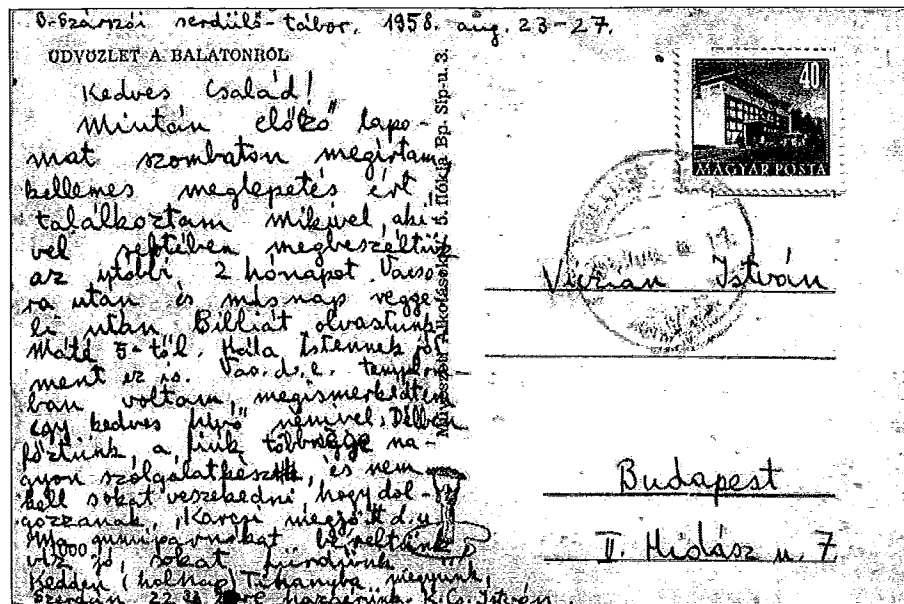 B-Szárszói serdülő-tábor. 1958. aug. 23-27.
ÜDVÖZLET A BALATONRÓL
Kedves Család!
Mintán előző lapo-
mat szombaton megirtam
kellemes meglepetés ért,
találkoztam mikivel, aki-
vel megbeszéltük
az utóbbi 2 hónapot. Vacso-
ra után és másnap regge-
li után Bibliát olvastunk
Máté 5-től. Hála Istennek jól
ment ez is. Vas. d. e. templom-
ban voltam, megismerkedtem
egy kedves hivő nénivel. Délben
főztünk, a fiúk többsége na-
gyon szolgálatkész, és nem
kell sokat veszekedni, hogy dol-
gozzanak. Karcsi megjött d. u.
Ma gumipárnákat béreltünk
viz jó, sokat fürdünk
Kedden (holnap) Tihanyba megyünk,
Szerdán 22 hazaérünk. K. Cs. István.
1000
Művészeti Alkotások 5. fiókja Bp. Síp-u. 3.
40
MAGYAR POSTA
Viczián István
Budapest
II. Hidász u. 7